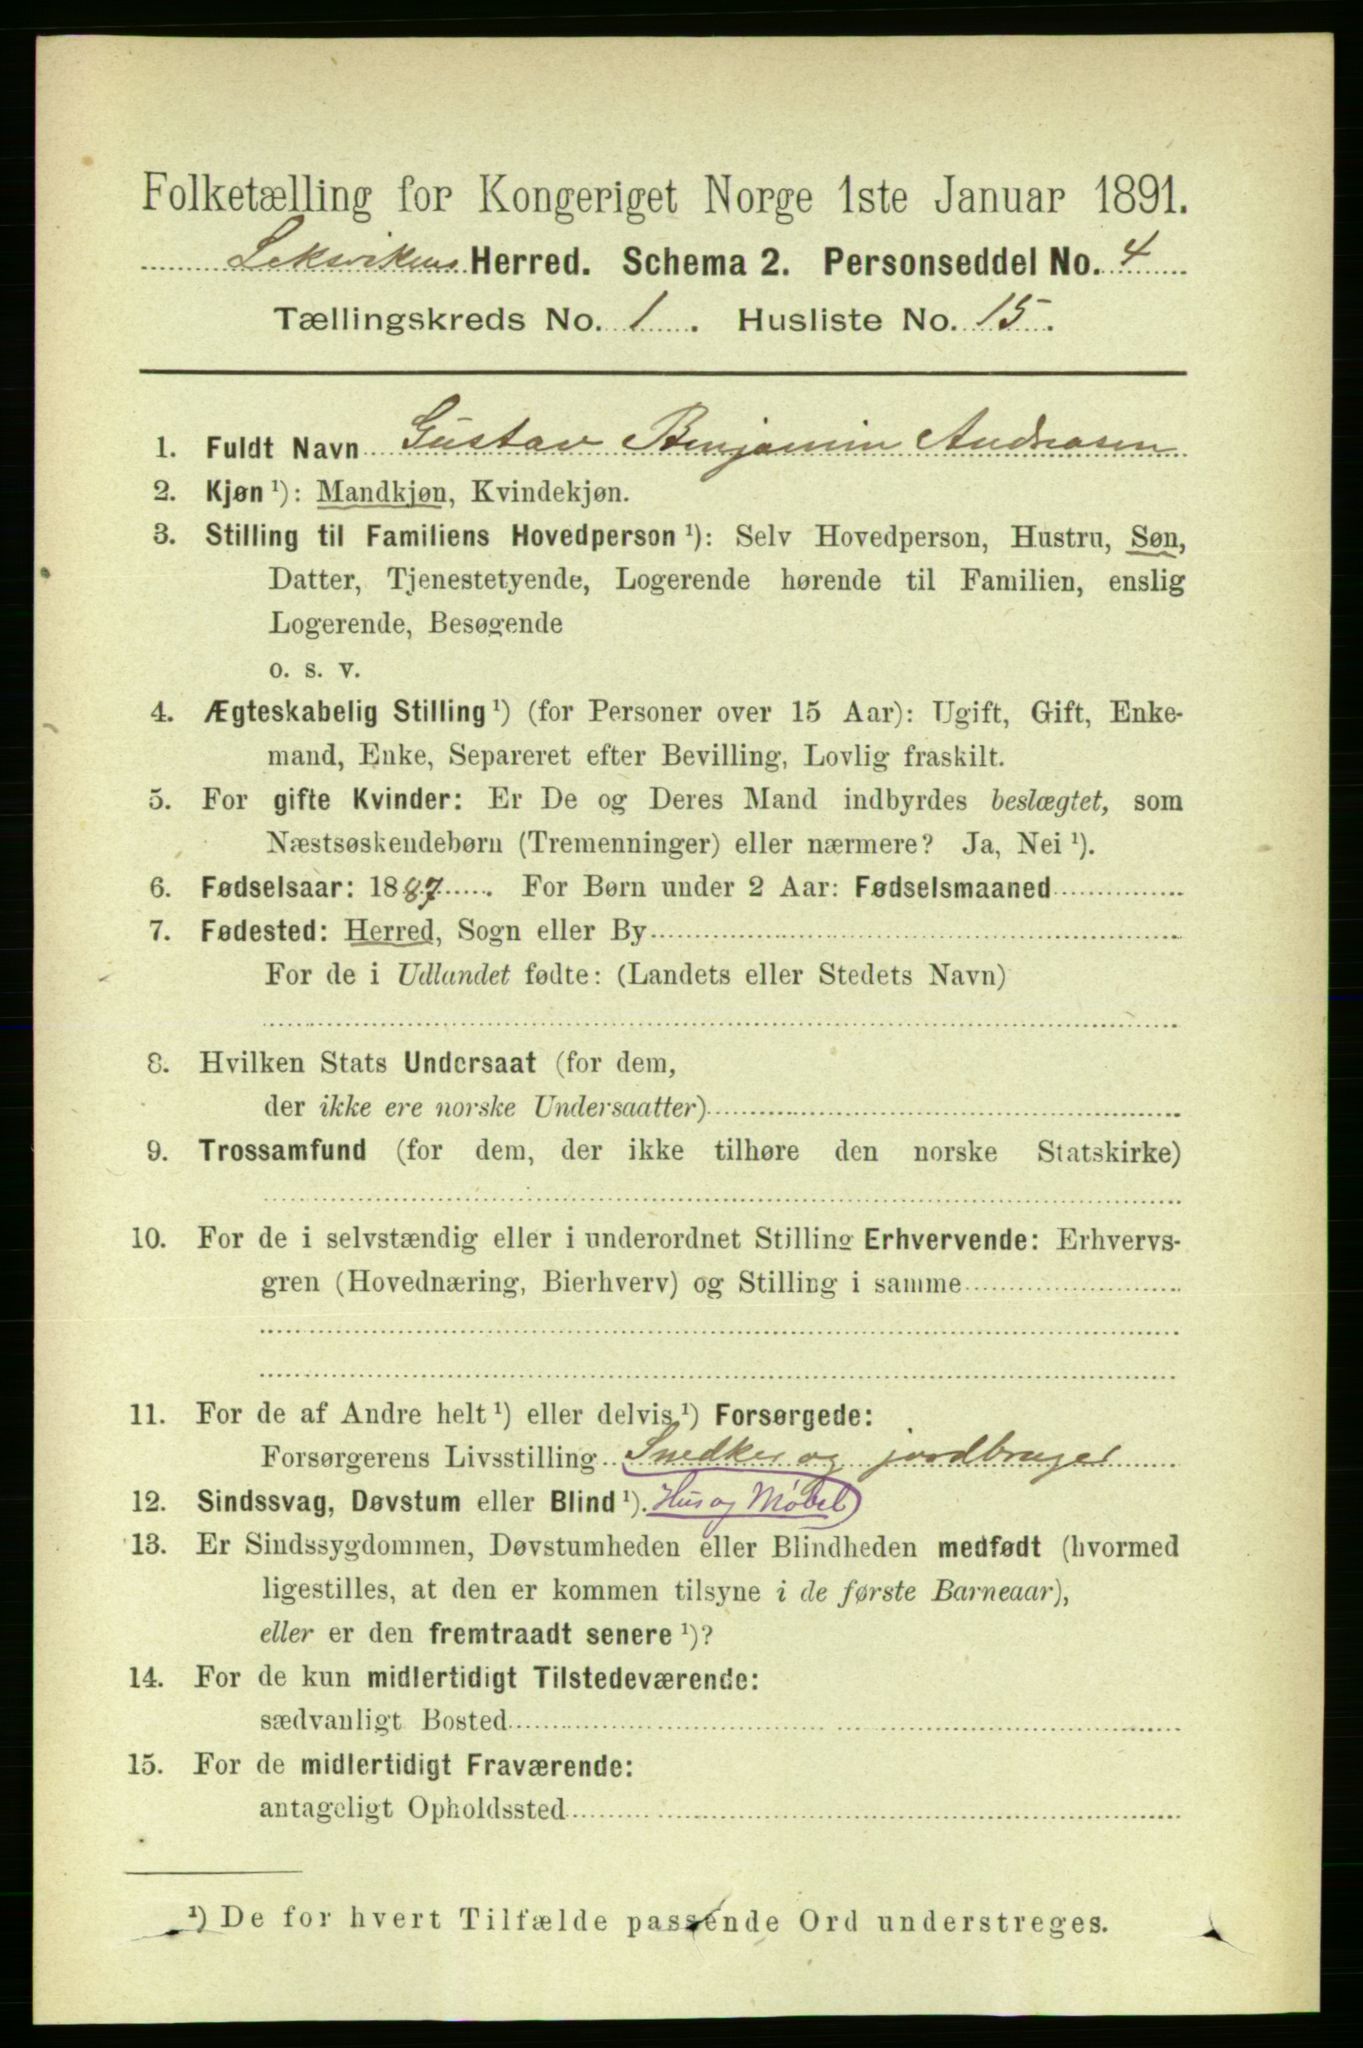 Folketælling for Kongeriget Norge 1ste Januar 1891.
Leksvikens Herred. Schema 2. Personseddel No. 4
Tællingskreds No. 1. Husliste No. 15.
1. Fuldt Navn Gustav Benjamin Andreasen
2. Kjøn ¹): Mandkjøn, Kvindekjøn.
3. Stilling til Familiens Hovedperson ¹): Selv Hovedperson, Hustru, Søn,
Datter, Tjenestetyende, Logerende hørende til Familien, enslig
Logerende, Besøgende
o. s. v.
4. Ægteskabelig Stilling ¹) (for Personer over 15 Aar): Ugift, Gift, Enke-
mand, Enke, Separeret efter Bevilling, Lovlig fraskilt.
5. For gifte Kvinder: Er De og Deres Mand indbyrdes beslægtet, som
Næstsøskendebørn (Tremenninger) eller nærmere? Ja, Nei ¹).
6. Fødselsaar: 1887. For Børn under 2 Aar: Fødselsmaaned
7. Fødested: Herred, Sogn eller By
For de i Udlandet fødte: (Landets eller Stedets Navn)
8. Hvilken Stats Undersaat (for dem,
der ikke ere norske Undersaatter)
9. Trossamfund (for dem, der ikke tilhøre den norske Statskirke)
10. For de i selvstændig eller i underordnet Stilling Erhvervende: Erhvervs-
gren (Hovednæring, Bierhverv) og Stilling i samme
11. For de af Andre helt ¹) eller delvis ¹) Forsørgede:
Forsørgerens Livsstilling Snedker og jordbruger
12. Sindssvag, Døvstum eller Blind ¹). Hus og Møbel
13. Er Sindssygdommen, Døvstumheden eller Blindheden medfødt (hvormed
ligestilles, at den er kommen tilsyne i de første Barneaar),
eller er den fremtraadt senere ¹)?
14. For de kun midlertidigt Tilstedeværende:
sædvanligt Bosted
15. For de midlertidigt Fraværende:
antageligt Opholdssted
¹) De for hvert Tilfælde passende Ord understreges.